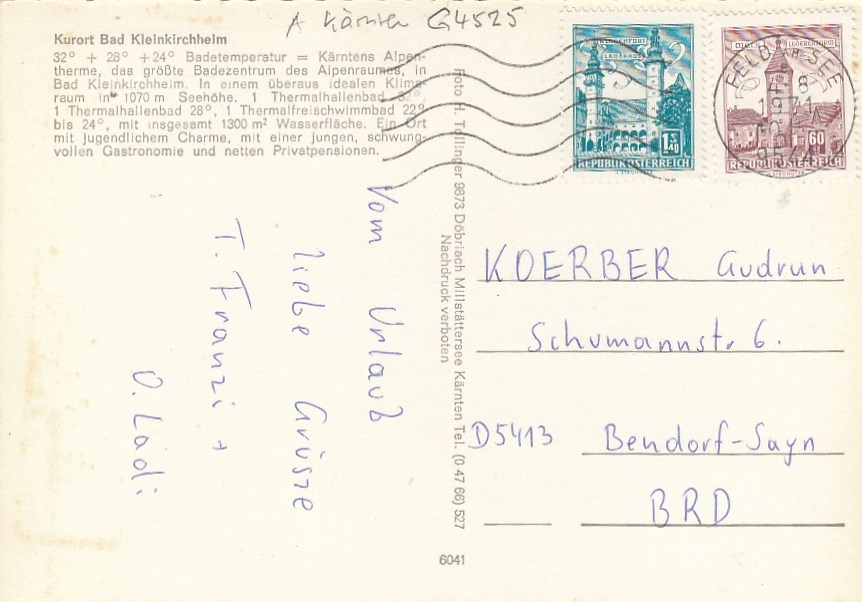 A Kärnten G4525
Kurort Bad Kleinkirchheim
32° + 28° +24° Badetemperatur = Kärntens Alpen-
therme, das größte Badezentrum des Alpenraumes, in
Bad Kleinkirchheim. In einem überaus idealen Klima-
raum in 1070 m Seehöhe. 1 Thermalhallenbad 32°
1 Thermalhallenbad 28°, 1 Thermalfreischwimmbad 22°
bis 24°, mit insgesamt 1300 m² Wasserfläche. Ein Ort
mit jugendlichem Charme, mit einer jungen, schwung-
vollen Gastronomie und netten Privatpensionen.
Vom Urlaub
liebe Grüsse
T. Franzi +
O. Ladi
Foto H. Tollinger 9873 Döbriach Millstättersee Kärnten Tel. (0 47 66) 527
Nachdruck verboten
6041
KLAGENFURT
LANDHAUS
1.40
REPUBLIK ÖSTERREICH
60
REPUBLIK ÖSTERREICH
FELD AM SEE
KOERBER Gudrun
Schumannstr 6.
D5413 Bendorf-Sayn
BRD